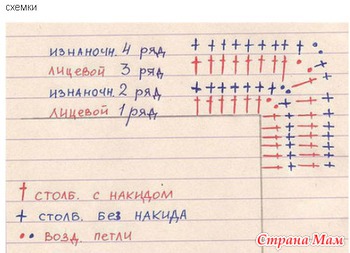 схемки
изнаночн. 4 ряд
лицевой 3 ряд
изнаночн. 2 ряд
лицевой 1 ряд
† столб. с накидом
+ столб. без накида
•• возд. петли
Страна Мам